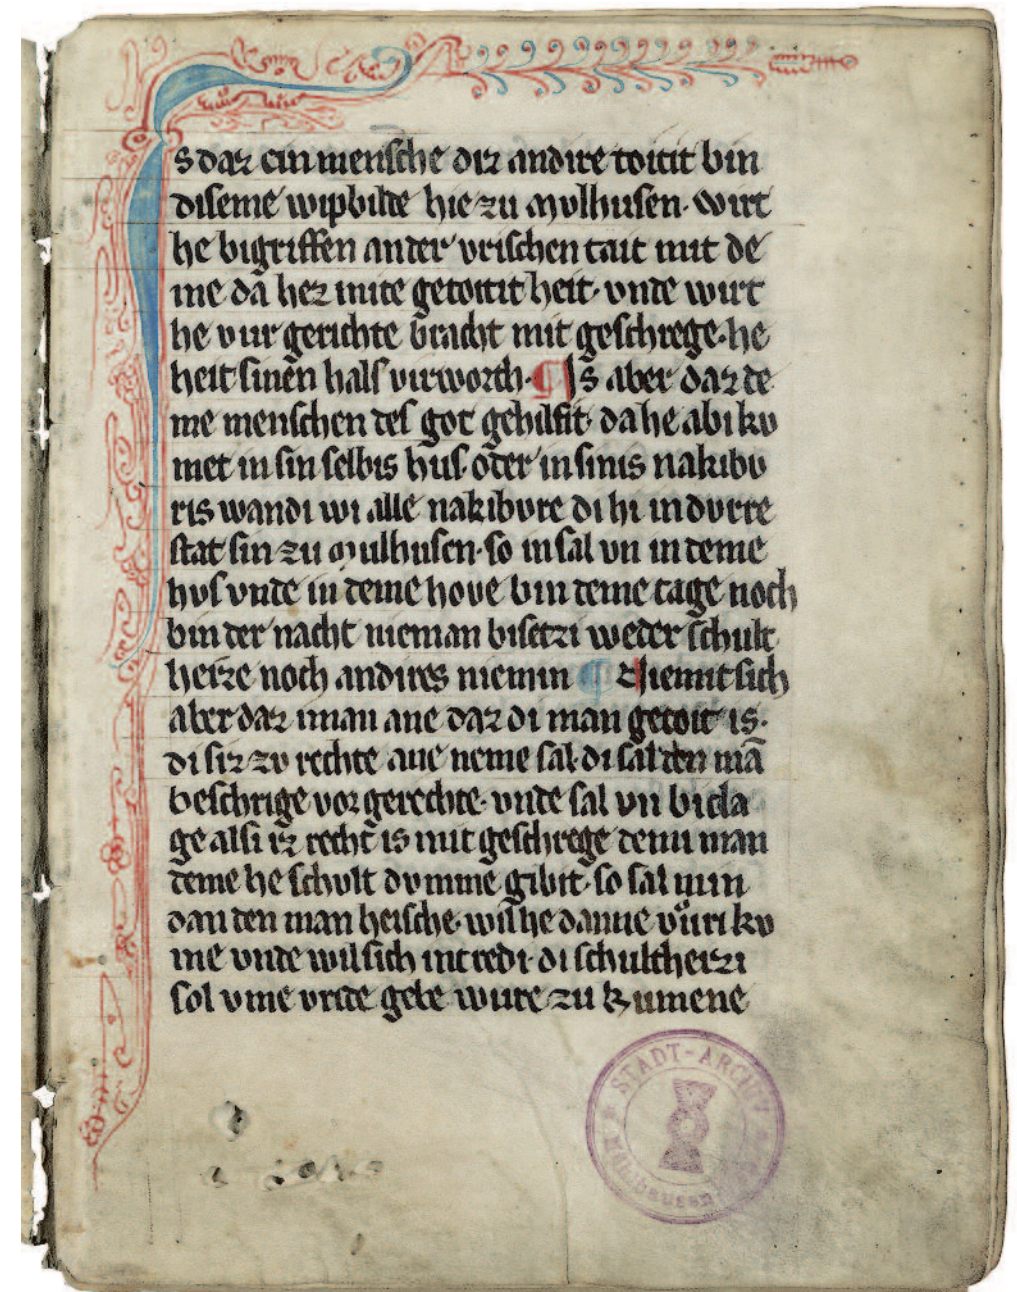 Is daz ein mensche diz andire toitit bin
diseme wipbilde hie zu mvlhusen· wirt
he bigriffen an der vrischen tait mit de
me da hez mite getoitit heit· vnde wirt
he vur gerichte bracht mit geschrege· he
heit sinen hals virworcht· ¶ Is aber daz de
me menschen des got gehilfit· da he abi kv
met in sin selbis hus· oder in sinis nakibv
ris wandi wi alle nakibvre di hi in dvrre
stat sin zu mulhusen· so insal vn in deme
hvs vnde in deme hove bin deme tage noch
bin der nacht nieman bisetzi weder schult
heize noch andires niemin ¶ Ziemit sich
aber daz iman ane daz di man getoit is·
di siz zv rechte ane neme sal· di sal den mā
beschrige vor gerechte· vnde sal vn bicla
ge alsi iz recht is mit geschrege denn man
deme he schvlt dvmme gibit· so sal min
dan den man heische· wil he danne vuri kv
me vnde wil sich intredi· di schultheizi
sol vme vrede gebe wure zu kumene
STADT-ARCHIV
Mühlhausen